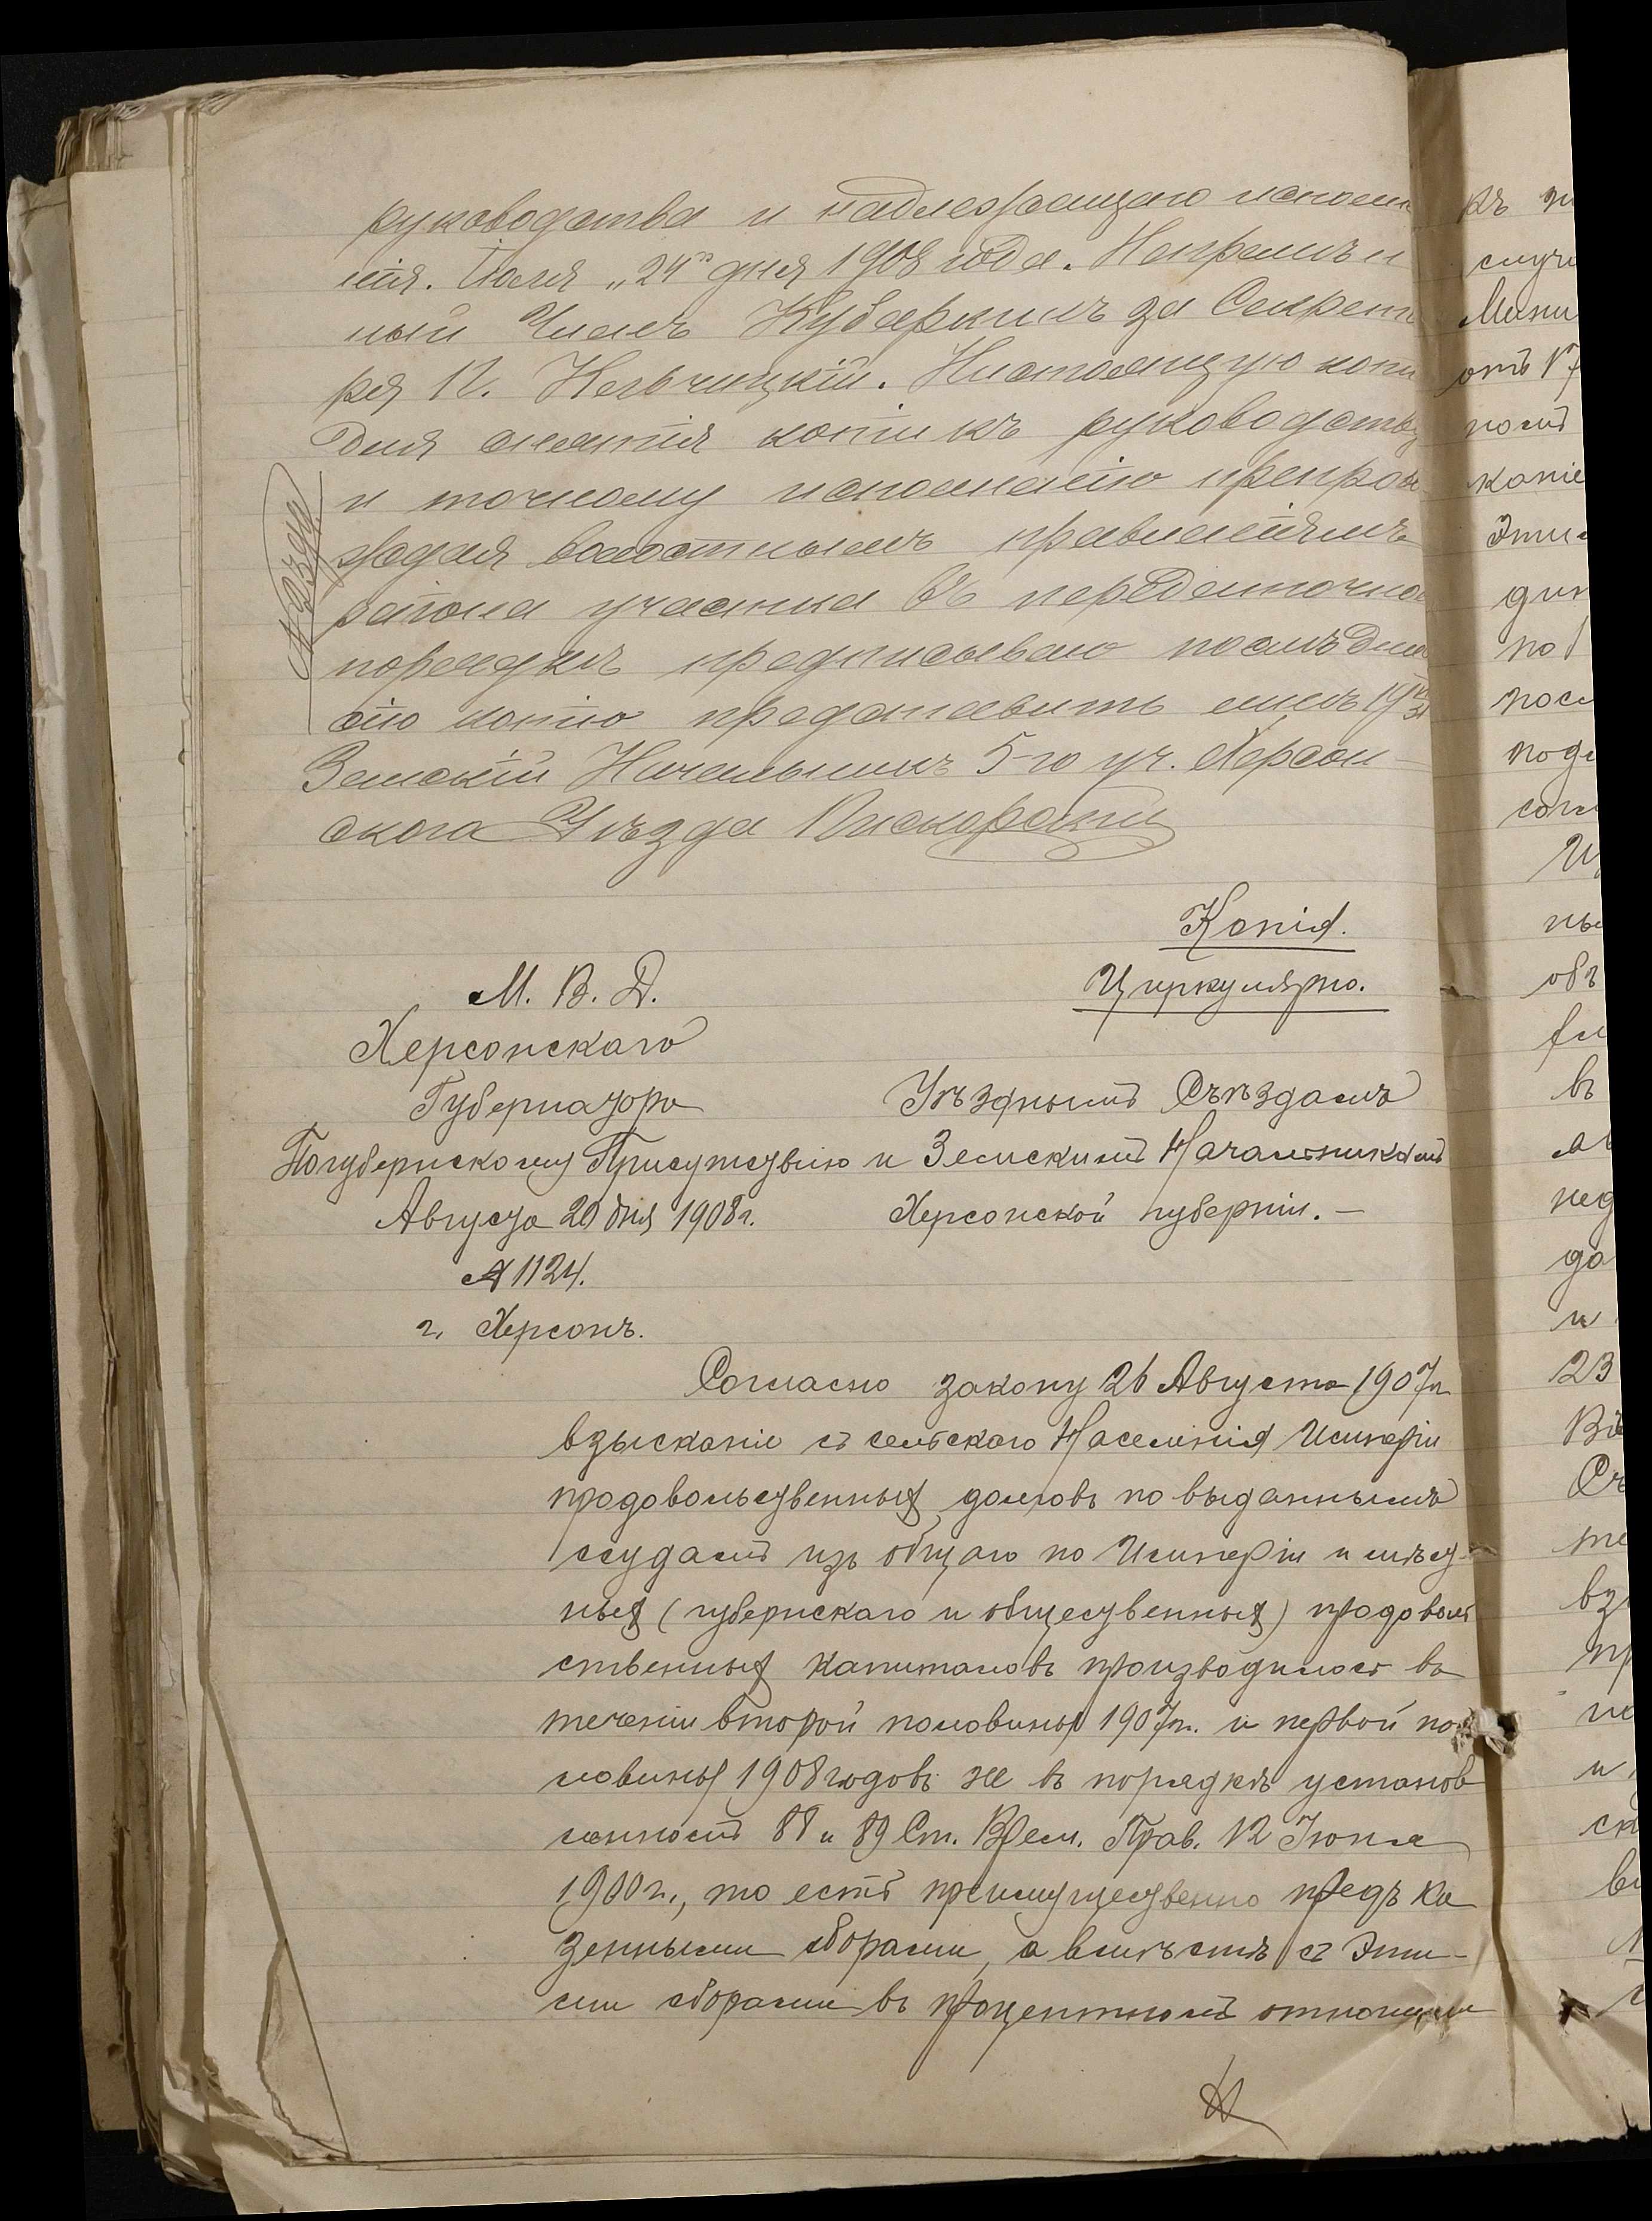 руководства и надлежащаго исполне
нія. Іюля „24" дня 1908 года. Непремѣн
ный Членъ Кубаркинъ за Секрета
ря П. Кельчицкій. Настоящую копію
для снятія копіи къ руководству
и точному исполненію препрово
ждая волостнымъ правленіямъ
района участка въ передаточномъ
порядкѣ предписываю послѣдне
сію копію представить мнѣ
Земскій Начальникъ 5-го уч. Херсон-
скаго Уѣзда
Копія.
М. В. Д.
Циркулярно.
Херсонскаго
Губернатора
Уѣзднымъ Съѣздамъ
По губернскому Присутствію и Земскимъ Начальникамъ
Августа 20 дня 1908 г.
Херсонской губерніи. —
№ 1124.
г. Херсонъ.
Согласно закону 26 Августа 1907 г.
взысканіе съ сельскаго Населенія Имперіи
продовольственныхъ долговъ по выданнымъ
ссудамъ изъ общаго по Имперіи и мѣст-
ныхъ (губернскаго и общественныхъ) продоволь
ственныхъ капиталовъ производилось въ
теченіи второй половины 1907 г. и первой по-
ловины 1908 годовъ не въ порядкѣ установ
ленномъ 88 и 89 Ст. Врем. Прав. 12 Іюня
1900 г., то есть преимущественно предъ ка
зенными сборами, а вмѣстѣ съ эти-
ми сборами въ процентномъ отношеніи
къ
случ
Мини
отъ
копіе
дин
пос
под
объ
въ
нед
да
и
23
вз
пр
и
ск